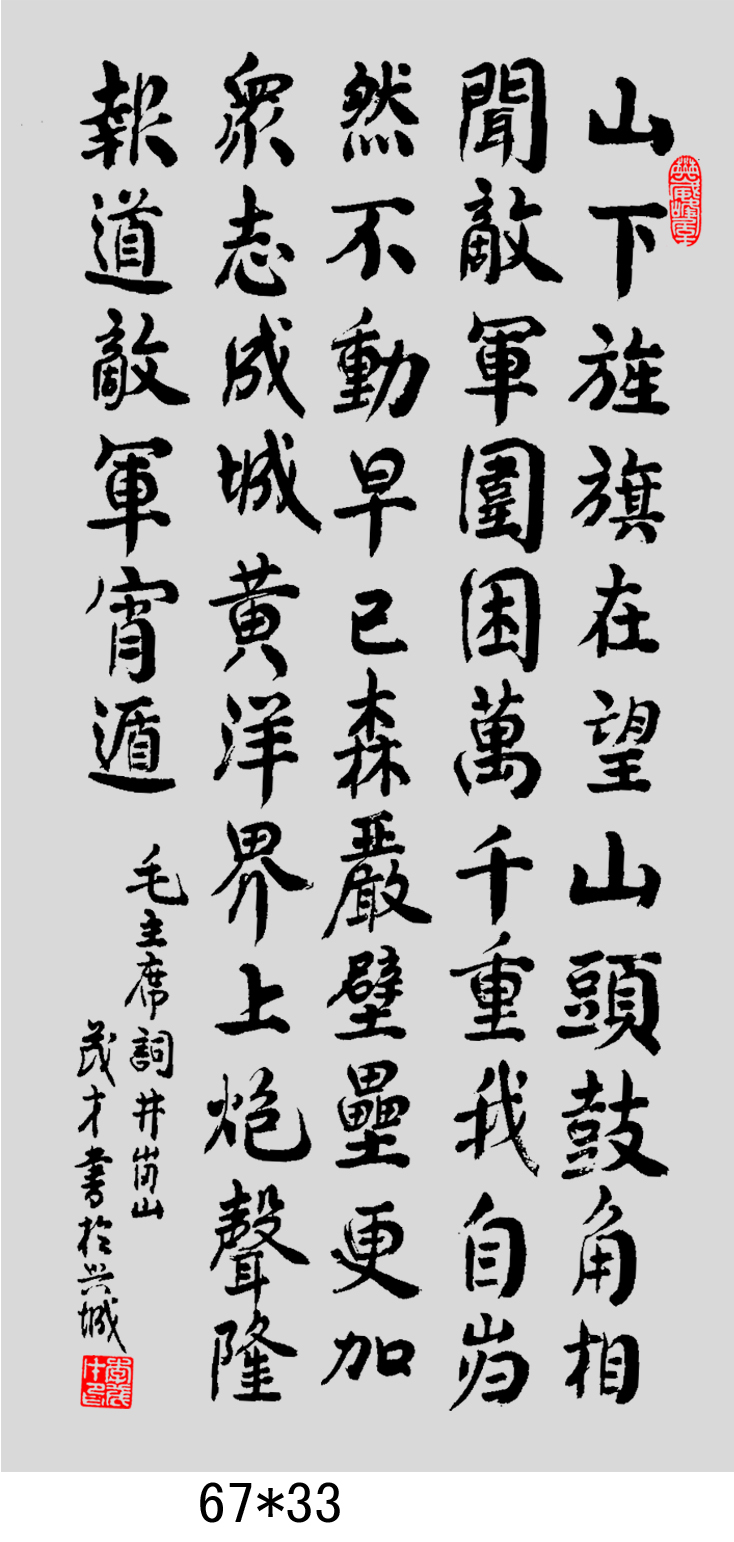 山下旌旗在望山頭鼓角相
聞敵軍圍困萬千重我自岿
然不動早已森嚴壁壘更加
衆志成城黄洋界上炮聲隆
報道敵軍宵遁
毛主席詞井崗山
茂才書於兴城
67*33